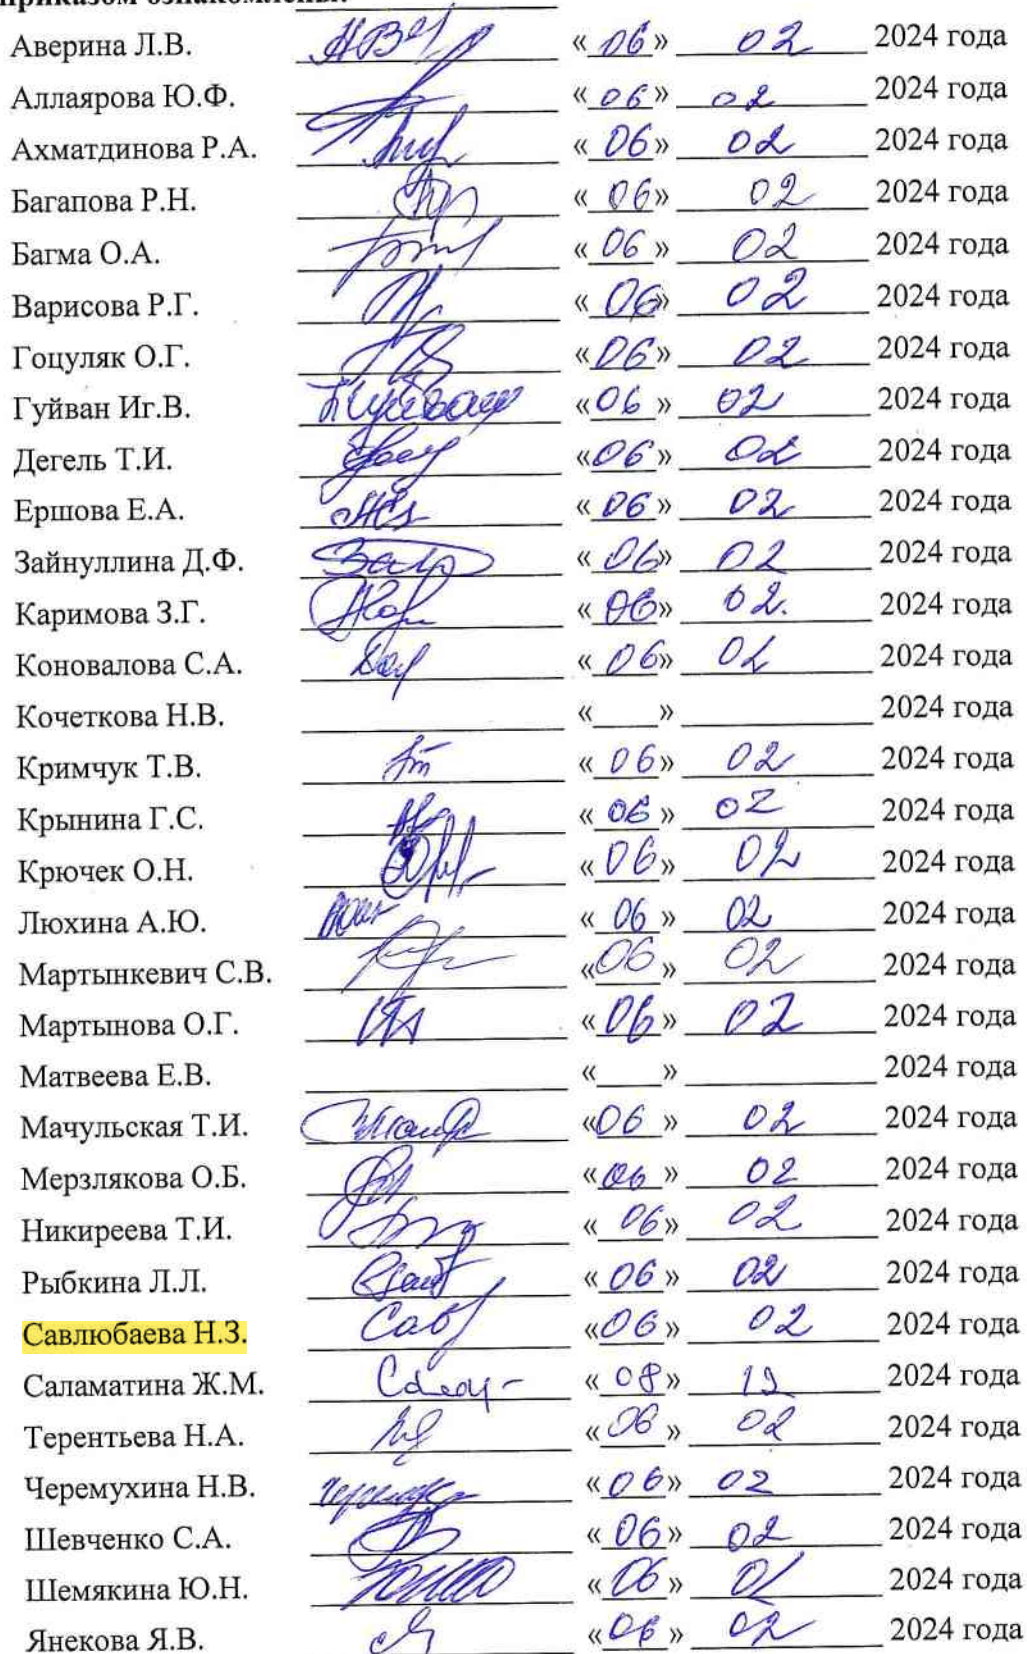 приказом ознакомлены:
Аверина Л.В. « 06 » 02 2024 года
Аллаярова Ю.Ф. « 06 » 02 2024 года
Ахматдинова Р.А. « 06 » 02 2024 года
Багапова Р.Н. « 06 » 02 2024 года
Багма О.А. « 06 » 02 2024 года
Варисова Р.Г. « 06 » 02 2024 года
Гоцуляк О.Г. « 06 » 02 2024 года
Гуйван Иг.В. « 06 » 02 2024 года
Дегель Т.И. « 06 » 02 2024 года
Ершова Е.А. « 06 » 02 2024 года
Зайнуллина Д.Ф. « 06 » 02 2024 года
Каримова З.Г. « 06 » 02. 2024 года
Коновалова С.А. « 06 » 02 2024 года
Кочеткова Н.В. «___» 2024 года
Кримчук Т.В. « 06 » 02 2024 года
Крынина Г.С. « 06 » 02 2024 года
Крючек О.Н. « 06 » 02 2024 года
Люхина А.Ю. « 06 » 02 2024 года
Мартынкевич С.В. « 06 » 02 2024 года
Мартынова О.Г. « 06 » 02 2024 года
Матвеева Е.В. «___» 2024 года
Мачульская Т.И. « 06 » 02 2024 года
Мерзлякова О.Б. « 06 » 02 2024 года
Никиреева Т.И. « 06 » 02 2024 года
Рыбкина Л.Л. « 06 » 02 2024 года
Савлюбаева Н.З. Сав « 06 » 02 2024 года
Саламатина Ж.М. « 08 » 2024 года
Терентьева Н.А. « 06 » 02 2024 года
Черемухина Н.В. « 06 » 02 2024 года
Шевченко С.А. « 06 » 02 2024 года
Шемякина Ю.Н. « 06 » 2024 года
Янекова Я.В. « 06 » 02 2024 года